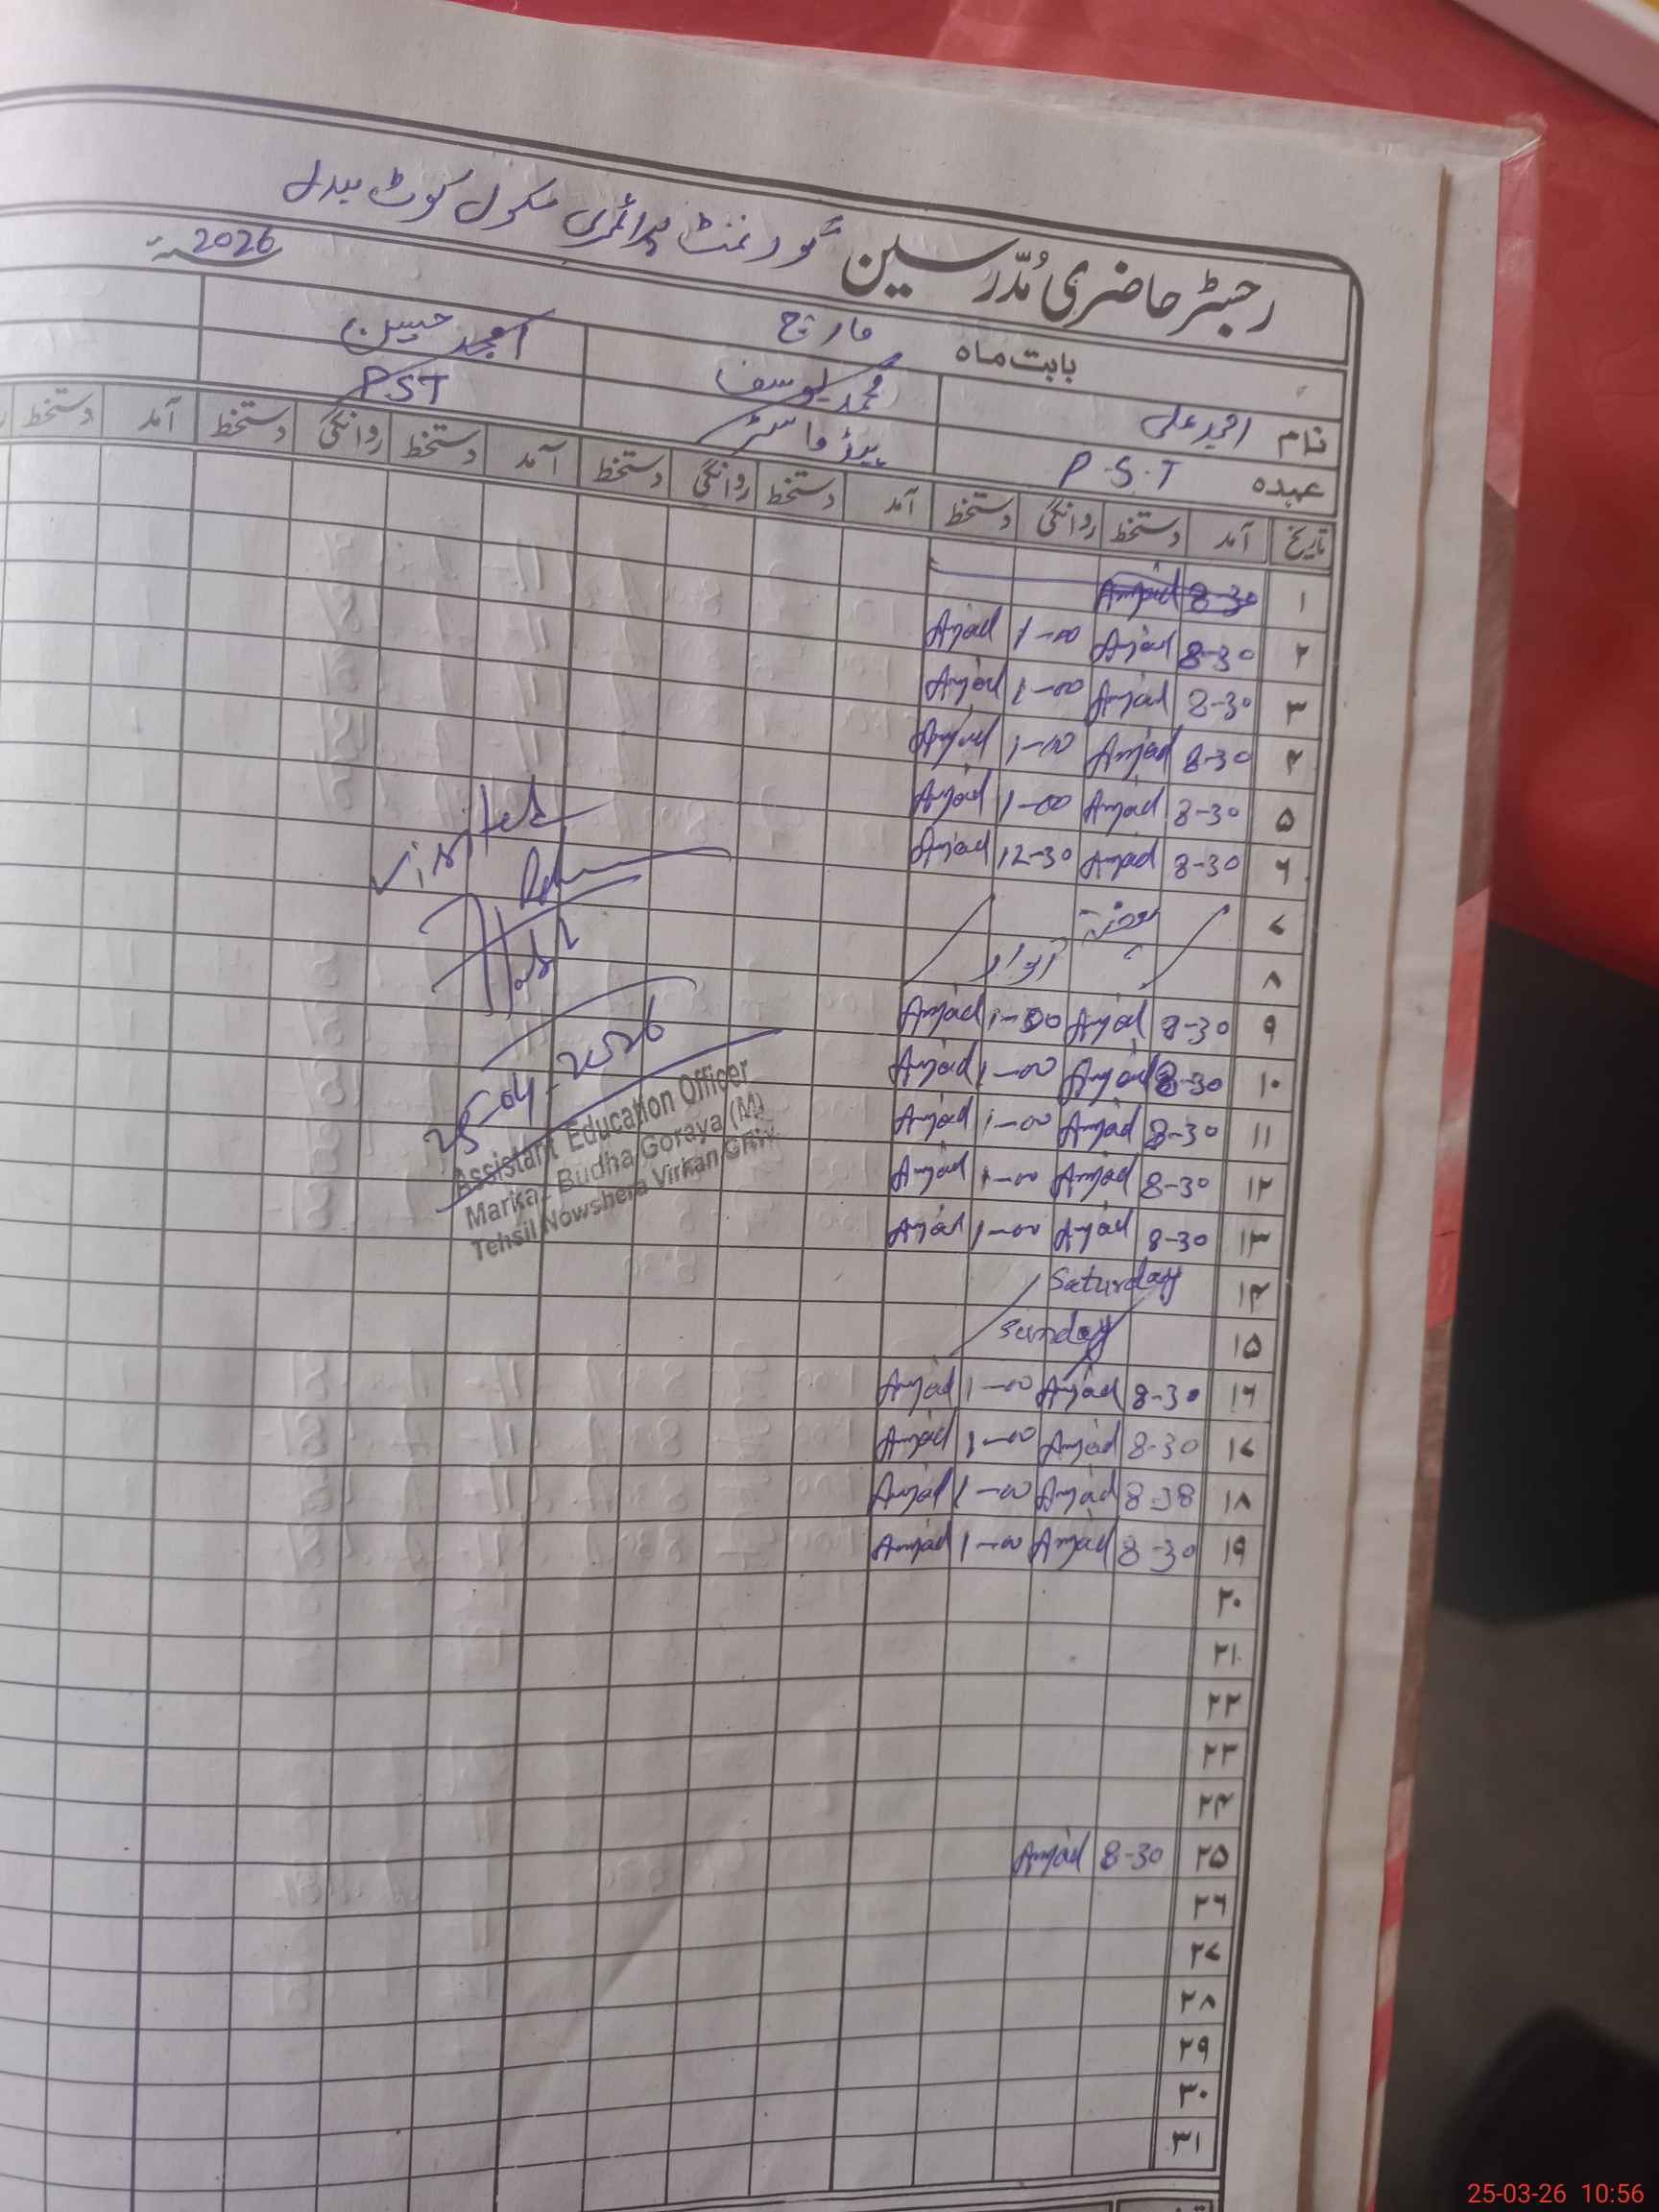 رجسٹر حاضری مُدّرسین گورنمنٹ پرائمری سکول کوٹ
بابت ماہ مارچ 2026
نام امجد علی محمد یوسف امجد حسین
عہدہ P.S.T ہیڈ ماسٹر PST
تاریخ آمد دستخط روانگی دستخط آمد دستخط روانگی دستخط آمد دستخط روانگی دستخط آمد دستخط
۱ 8-30 Amjad
۲ 8-30 Amjad 1-00 Amjad
۳ 8-30 Amjad 1-00 Amjad
۴ 8-30 Amjad 1-00 Amjad
۵ 8-30 Amjad 1-00 Amjad
۶ 8-30 Amjad 12-30 Amjad
۷ ہفتہ
۸ اتوار
۹ 8-30 Amjad 1-00 Amjad
۱۰ 8-30 Amjad 1-00 Amjad
۱۱ 8-30 Amjad 1-00 Amjad
۱۲ 8-30 Amjad 1-00 Amjad
۱۳ 8-30 Amjad 1-00 Amjad
۱۴ Saturday
۱۵ Sunday
۱۶ 8-30 Amjad 1-00 Amjad
۱۷ 8-30 Amjad 1-00 Amjad
۱۸ 8-38 Amjad 1-00 Amjad
۱۹ 8-30 Amjad 1-00 Amjad
۲۰
۲۱
۲۲
۲۳
۲۴
۲۵ 8-30 Amjad
۲۶
۲۷
۲۸
۲۹
۳۰
۳۱
Visited
25-04-2026
Assistant Education Officer
Marka- Budha Goraya (M)
Tehsil Nowshera Virkan GRW
25-03-26 10:56